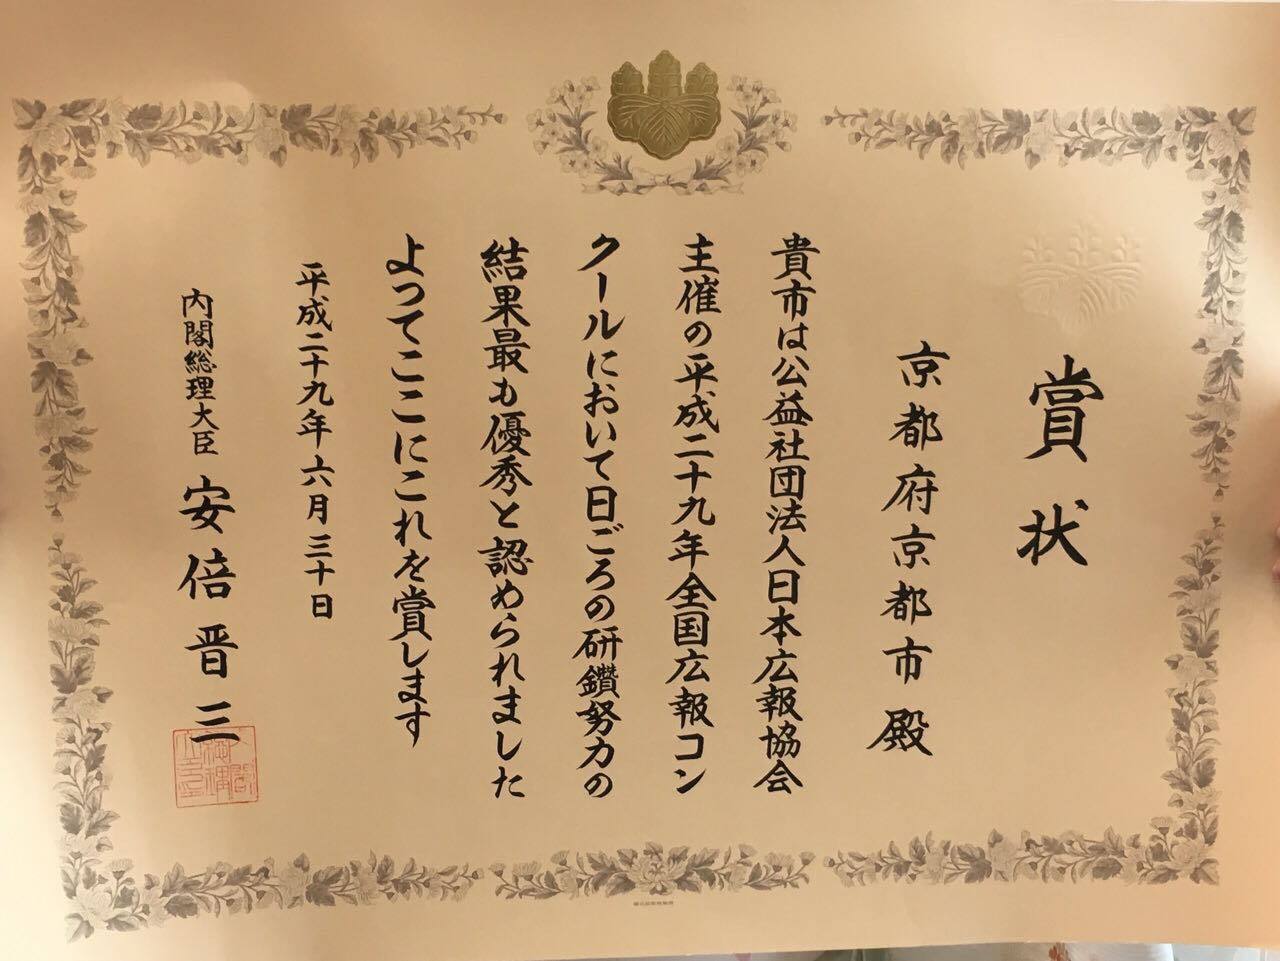 賞状
京都府京都市殿
貴市は公益社団法人日本広報協会
主催の平成二十九年全国広報コン
クールにおいて日ごろの研鑽努力の
結果最も優秀と認められました
よってここにこれを賞します
平成二十九年六月三十日
内閣総理大臣 安倍晋三